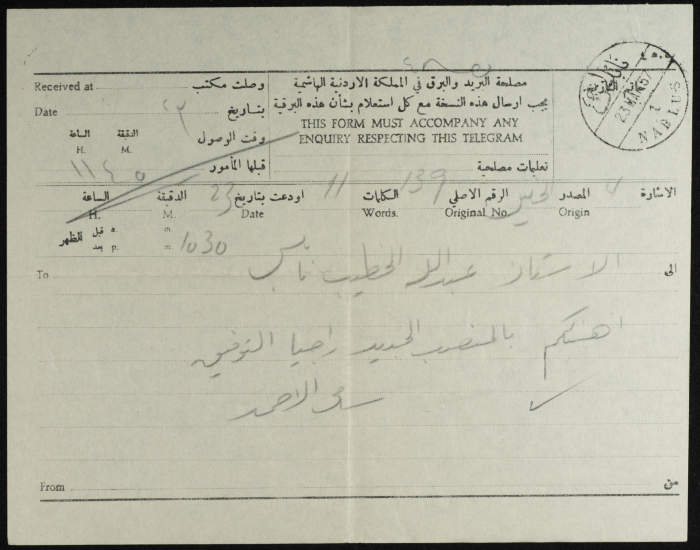 ٤٨٥
Received at وصلت مكتب
مصلحة البريد والبرق في المملكة الاردنية الهاشمية
Date بتاريخ ٢٣
يجب ارسال هذه النسخة مع كل استعلام بشأن هذه البرقية
THIS FORM MUST ACCOMPANY ANY
ENQUIRY RESPECTING THIS TELEGRAM
الساعة الدقيقة وقت الوصول
H. M.
١١٤٥ قبلها المأمور
تعليمات مصلحية
نابلس
23 MAR 57
1
NABLUS
الاشارة 4 المصدر الرقم الاصلي 139 الكلمات 11 اودعت بتاريخ 23 الدقيقة الساعة
Origin Original No. Words. Date M. H.
الظهر قبل a. m.
بعد p. m. 1030
To الاستاذ عبدالله الخطيب نابلس الى
اهنئكم بالمنصب الجديد راجيا التوفيق
الاحمد
From من